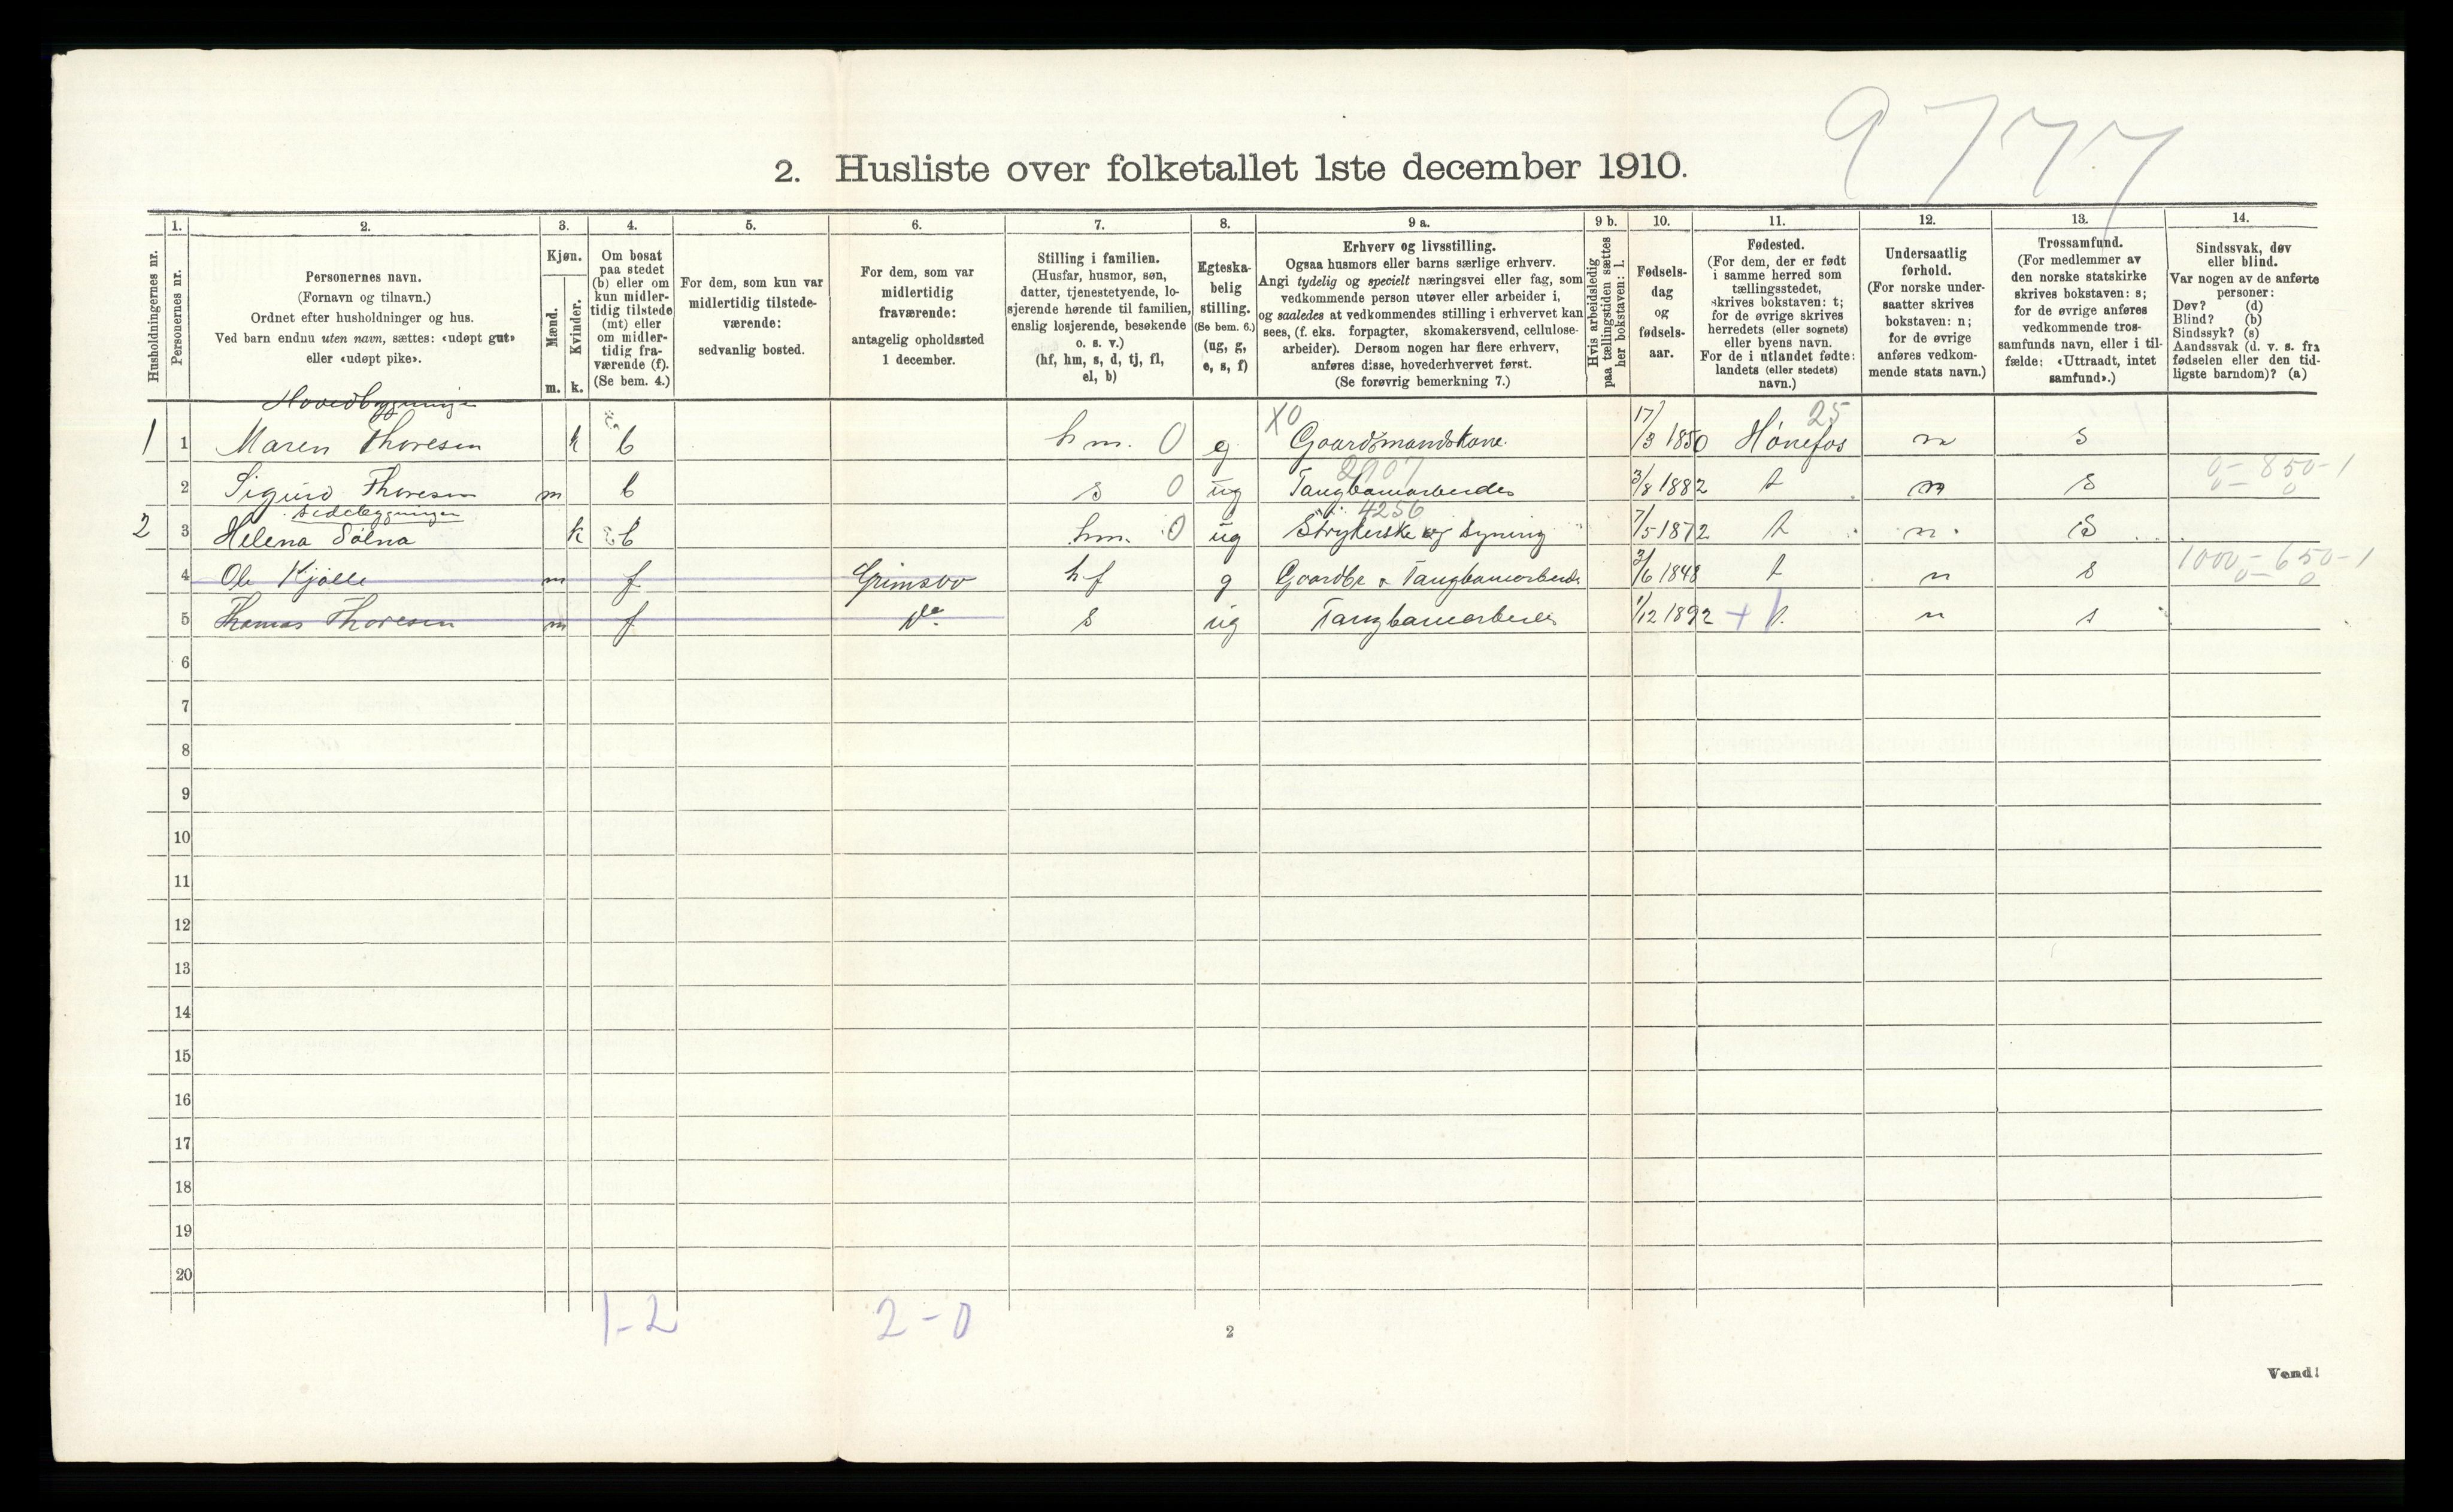 9777
2. Husliste over folketallet 1ste december 1910.
Husholdningernes nr.
1.
Personernes nr.
2.
Personernes navn.
(Fornavn og tilnavn.)
Ordnet efter husholdninger og hus.
Ved barn endnu uten navn, sættes: «udøpt gut»
eller «udøpt pike».
3.
Kjøn.
Mænd.
Kvinder.
m. k.
4.
Om bosat
paa stedet
(b) eller om
kun midler-
tidig tilstede
(mt) eller
om midler-
tidig fra-
værende (f).
(Se bem. 4.)
5.
For dem, som kun var
midlertidig tilstede-
værende:
sedvanlig bosted.
6.
For dem, som var
midlertidig
fraværende:
antagelig opholdssted
1 december.
7.
Stilling i familien.
(Husfar, husmor, søn,
datter, tjenestetyende, lo-
sjerende hørende til familien,
enslig losjerende, besøkende
o. s. v.)
(hf, hm, s, d, tj, fl,
el, b)
8.
Egteska-
belig
stilling.
(Se bem. 6.)
(ug, g,
e, s, f)
9 a.
Erhverv og livsstilling.
Ogsaa husmors eller barns særlige erhverv.
Angi tydelig og specielt næringsvei eller fag, som
vedkommende person utøver eller arbeider i,
og saaledes at vedkommendes stilling i erhvervet kan
sees, (f. eks. forpagter, skomakersvend, cellulose-
arbeider). Dersom nogen har flere erhverv,
anføres disse, hovederhvervet først.
(Se forøvrig bemerkning 7.)
9 b.
Hvis arbeidsledig
paa tællingstiden sættes
her bokstaven: l.
10.
Fødsels-
dag
og
fødsels-
aar.
11.
Fødested.
(For dem, der er født
i samme herred som
tællingsstedet,
skrives bokstaven: t;
for de øvrige skrives
herredets (eller sognets)
eller byens navn.
For de i utlandet fødte:
landets (eller stedets)
navn.)
12.
Undersaatlig
forhold.
(For norske under-
saatter skrives
bokstaven: n;
for de øvrige
anføres vedkom-
mende stats navn.)
13.
Trossamfund.
(For medlemmer av
den norske statskirke
skrives bokstaven: s;
for de øvrige anføres
vedkommende tros-
samfunds navn, eller i til-
fælde: «Uttraadt, intet
samfund».)
14.
Sindssvak, døv
eller blind.
Var nogen av de anførte
personer:
Døv? (d)
Blind? (b)
Sindssyk? (s)
Aandssvak (d. v. s. fra
fødselen eller den tid-
ligste barndom)? (a)
Hovedbygningen
X0 25
1 1 Maren Thoresen k b hm. 0 g Gaardsmandskone. 17/3 1850 Hönefos n s
2907 0- 850-1
2 Sigurd Thoresen m b s 0 ug 3/8 1882 t n s 0
sidebygningen 4256
2 3 Helena k b hm. 0 ug Strykerske og Syning 7/5 1872 t n. S
1000- 650-1
4 Ole Kjölle m f hf g 3/6 1848 t n s 0
5 Thomas Thoresen m f Do. s ug 1/12 1892 + t. n s
6
7
8
9
10
11
12
13
14
15
16
17
18
19
20
1-2 2-0
2
Vend!